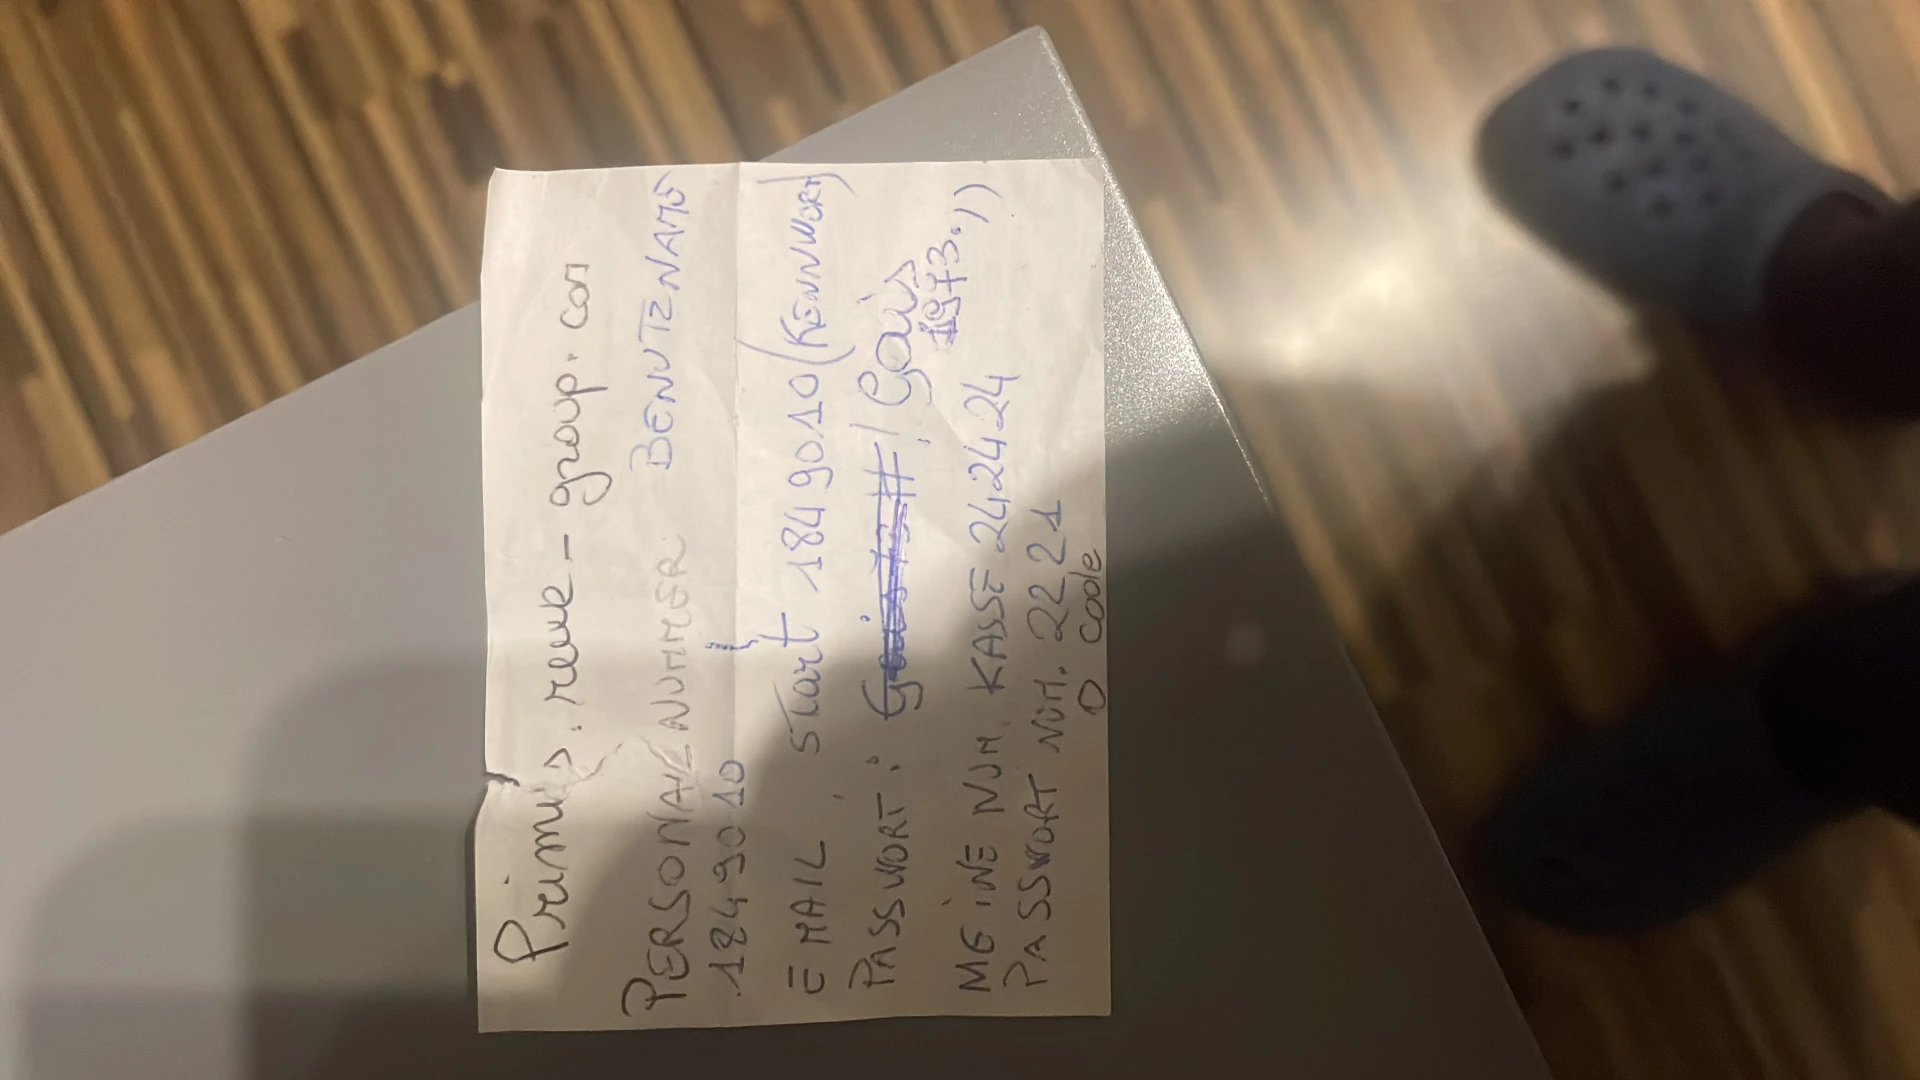 Primus.rewe-group.com
PERSONALNUMMER BENUTZNAME
1849010
EMAIL Start 1849010 (KENNWORT)
PASSWORT: ! Gais
1973.))
MEINE NUM. KASE 242424
PASSWORT NUM. 2221
O Coole